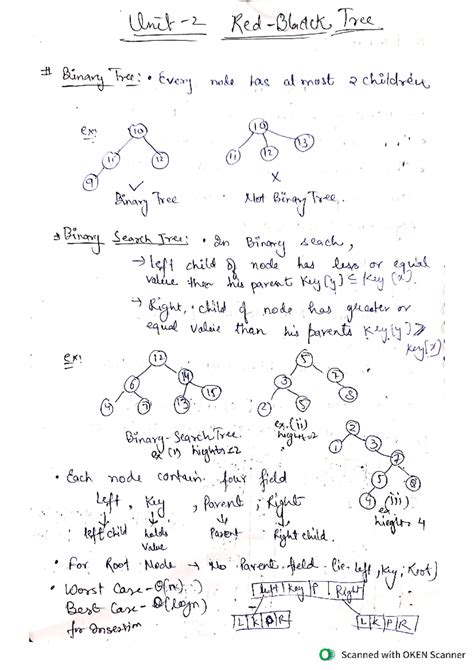 Unit-2 Red-Black Tree
# Binary Tree: • Every node has at most 2 children
ex:
10
11
12
9
Binary Tree
10
11
12
13
X
Not Binary Tree.
Binary Search Tree: • In Binary seach,
→ left child of node has less or equal
value then his parent Key[y] ≤ Key (x).
→ Right, child of node has greater or
equal value than his parents Key[y] ≥
key[x]
ex:
12
6
14
4
9
13
15
Binary-Search Tree
ex (i) hights=2
5
3
7
2
5
8
ex.(ii)
hights=2
2
1
3
7
5
8
4
(iii)
ex
hieght = 4
• Each node contain four field
Left, Key, Parent, Right
left child holds Parent Right child.
value
• For Root Node → No Parent field (ie. left, key, Root)
• Worst Case - Θ(n)
Best Case - (logn)
for Insertion
left Key P Right
L K P R
L K P R
Scanned with OKEN Scanner